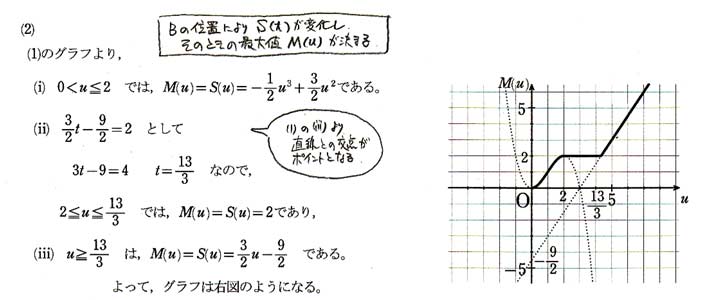 (2)
Bの位置により S(t)が変化し
そのときの最大値 M(u) が決まる.
(1)のグラフより,
(i) 0<u≦2 では, M(u)=S(u)=-1/2u³+3/2u²である。
(ii) 3/2t-9/2=2 として
(1)の(iii)より
直線との交点が
ポイントとなる
3t-9=4 t=13/3 なので,
2≦u≦13/3 では, M(u)=S(u)=2であり,
(iii) u≧13/3 は, M(u)=S(u)=3/2u-9/2 である。
よって, グラフは右図のようになる。
M(u)
5
2
O 2 13/3 5 u
-9/2
-5